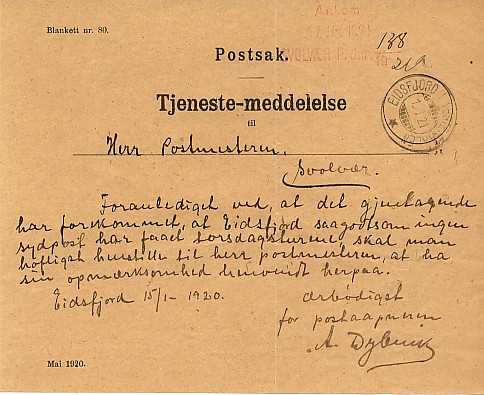 Blankett nr. 80.
Ankom
1921
SVOLVÆR P.
188
Postsak.
21
Tjeneste-meddelelse
EIDSFJORD
til
Herr Postmesteren,
Svolvær.
Foranlediget ved, at det gjentagende
har forekommet, at Eidsfjord saagodtsom ingen
sydpost har faaet torsdagsturene, skal man
høfligst henstille til herr postmesteren, at ha
sin opmærksomhed henvendt herpaa.
Eidsfjord 15/1-1920.
ærbødigst
for postaapneren
A.
Mai 1920.